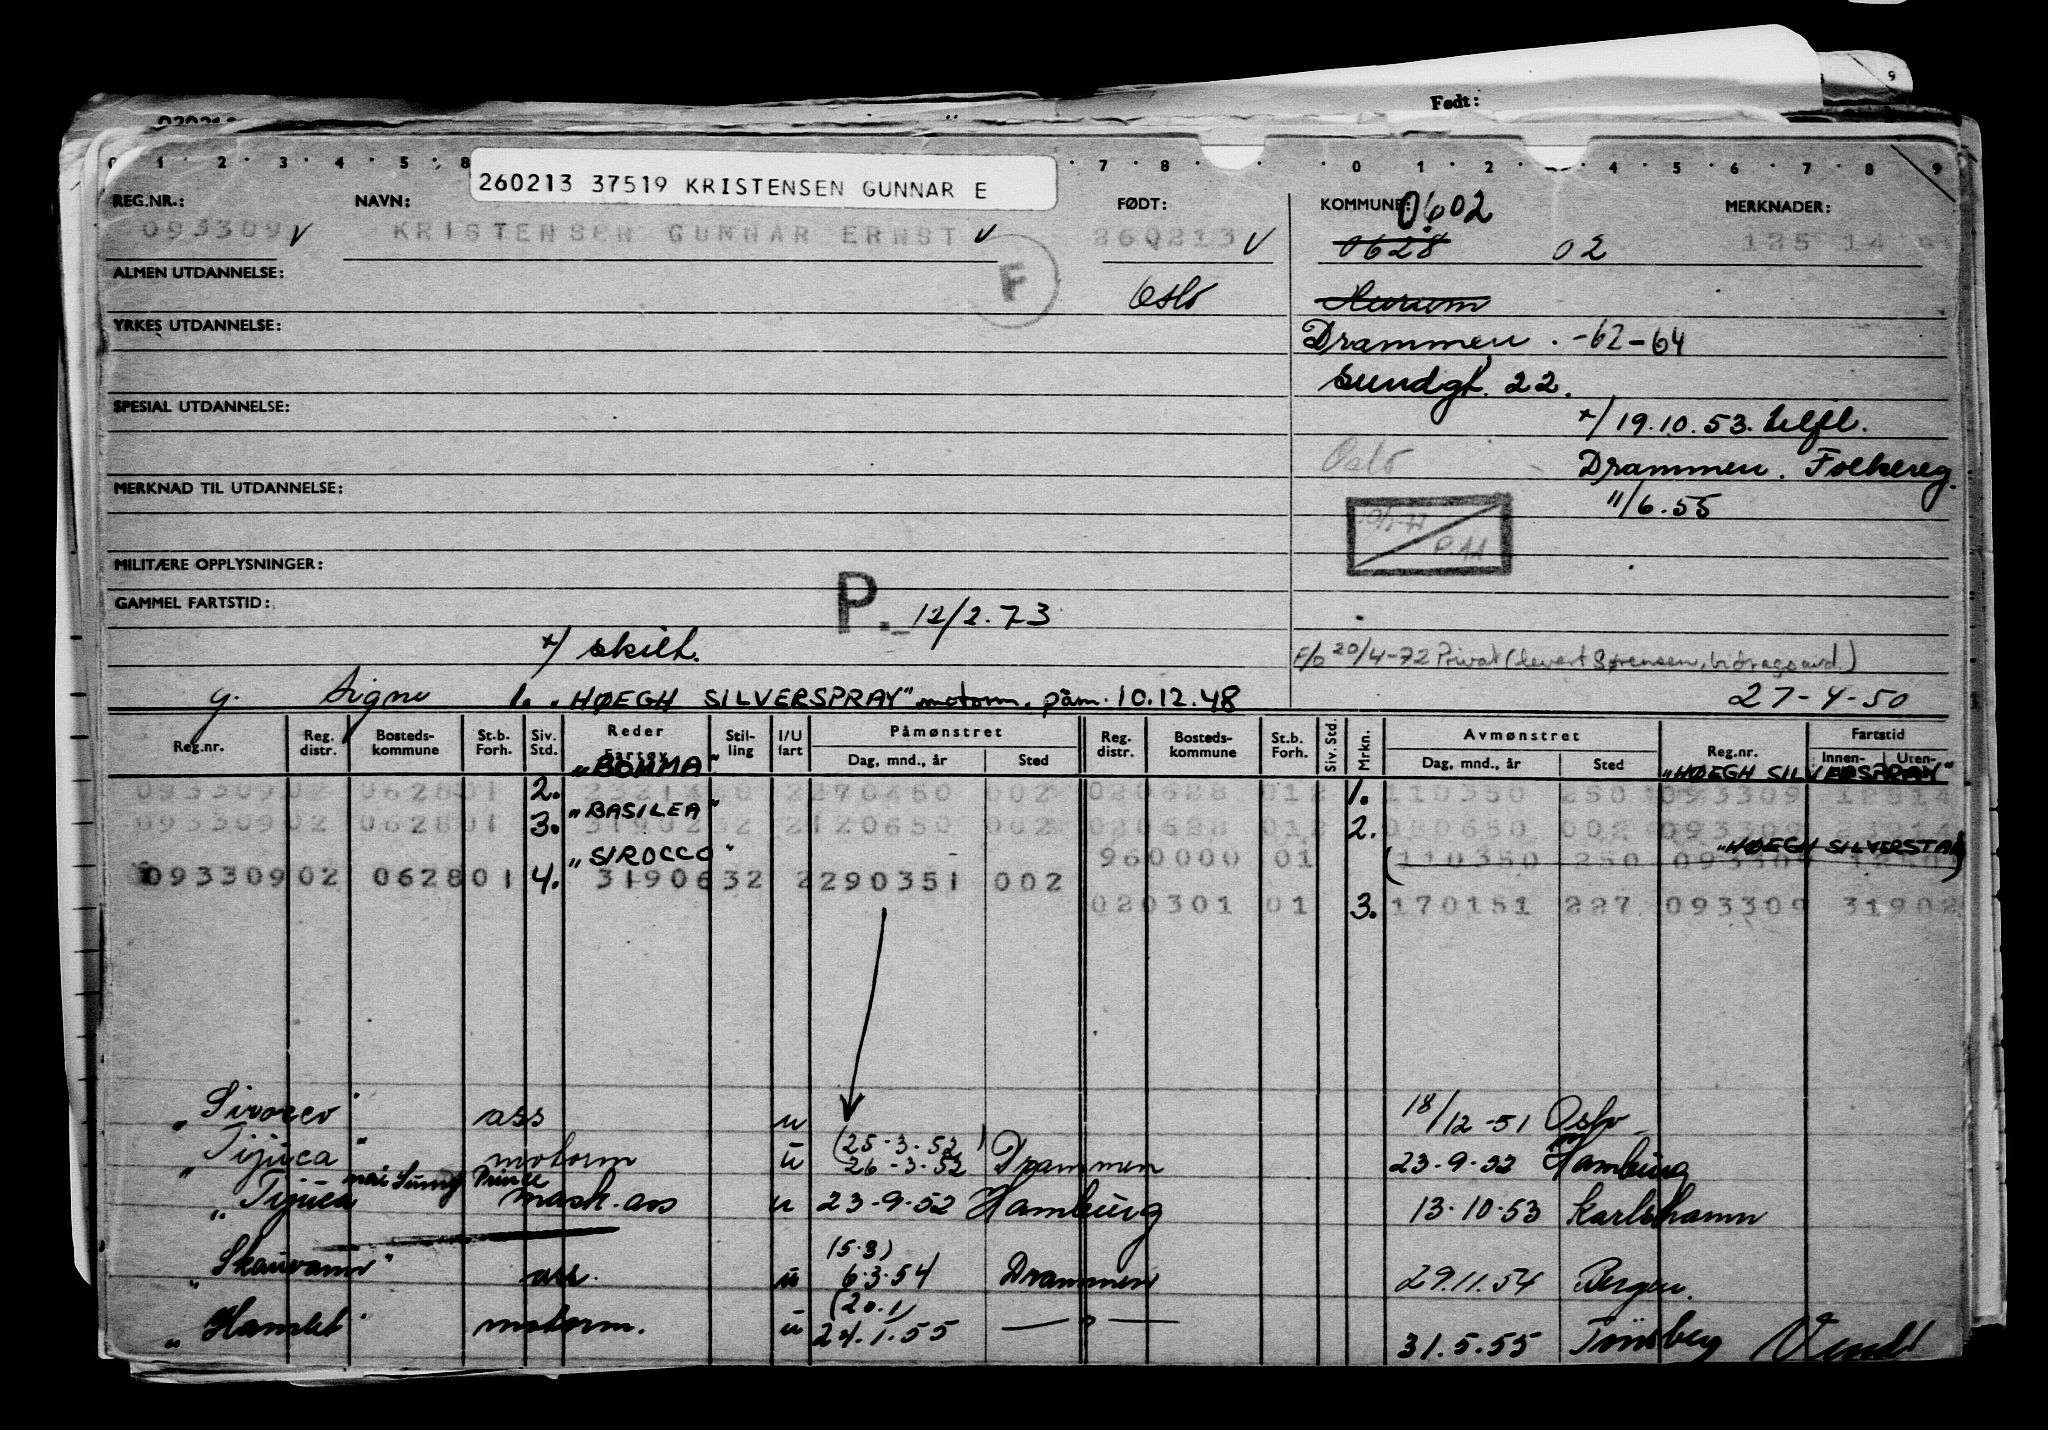 Født:
260213 37519 KRISTENSEN GUNNAR E
REG.NR.: NAVN: FØDT: KOMMUNE: 0602 MERKNADER:
093309 V KRISTENSEN GUNNAR ERNST V 260213 V 0628 02 125 14
ALMEN UTDANNELSE: F Oslo Hurum
YRKES UTDANNELSE: Drammen. -62-64
Sundgt. 22.
SPESIAL UTDANNELSE: +/ 19.10.53. tilfl.
Oslo Drammen. Folkereg.
MERKNAD TIL UTDANNELSE: 11/6.55
MILITÆRE OPPLYSNINGER:
GAMMEL FARTSTID: P. 12/2.73
+/ skilt. F/b 20/4-72 Privat (levert Sørensen, bidragsavd.)
g. Signe 1. "HØEGH SILVERSPRAY" motorm. påm. 10.12.48 27-4-50
Reg.nr. Reg. distr. Bosteds-kommune St.b. Forh. Siv. Std. Reder Fartøy Stil-ling I/U fart Påmønstret Dag, mnd., år Sted Reg. distr. Bosteds-kommune St.b. Forh. Siv. Std. Mrkn. Avmønstret Dag, mnd., år Sted Reg.nr. Fartstid Innen- Uten-
"BOMMA" "HØEGH SILVERSPRAY"
093309 02 062801 2. 2270450 002 020628 012 1. 110350 250 093309 12814
"BASILEA"
093309 02 062801 3. 3190232 2120650 002 020628 012 2. 080650 002 093309
"SIROCCO" 960000 01 (110350 250 093309 "HØEGH SILVERSTAR")
093309 02 062801 4. 3190632 2290351 002
020301 01 3. 170151 227 093309 31902
"Sirocco" ass u 18/12-51 Oslo
"Tijuca" motorm u (25-3-52) 26-3-52 Drammen 23-9-52 Hamburg
"Tijuca mask. ass u 23-9-52 Hamburg 13-10-53 Karlshamn
"Skauvann" ass. u (5.3) 6.3.54 Drammen 29.11.54 Bergen.
"Hamlet" motorm. u (20.1) 24.1.55 — " — 31.5.55 Tönsberg